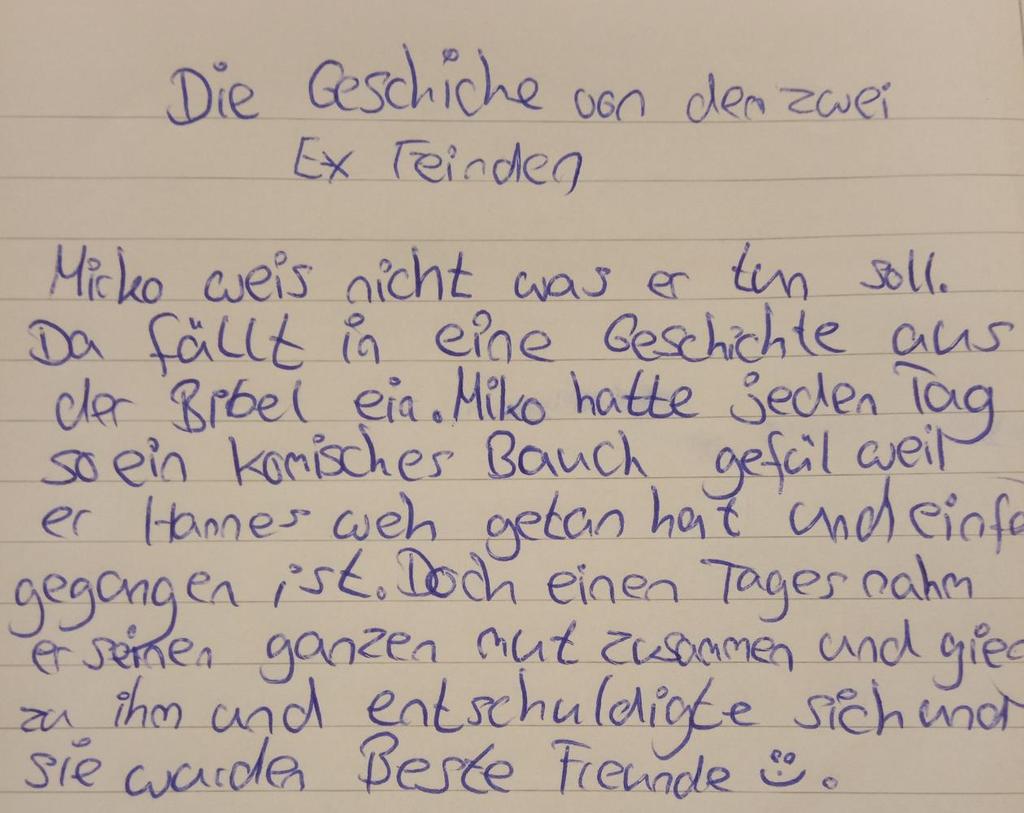 Die Geschiche von den zwei
Ex Feinden
Micko weis nicht was er tun soll.
Da fällt in eine Geschichte aus
der Bibel ein. Miko hatte jeden Tag
so ein komisches Bauch gefül weil
er Hannes weh getan hat und einfa
gegangen ist. Doch einen Tages nahm
er seinen ganzen mut zusammen und gieg
zu ihm und entschuldigte sich und
sie wurden Beste Freunde ☺.